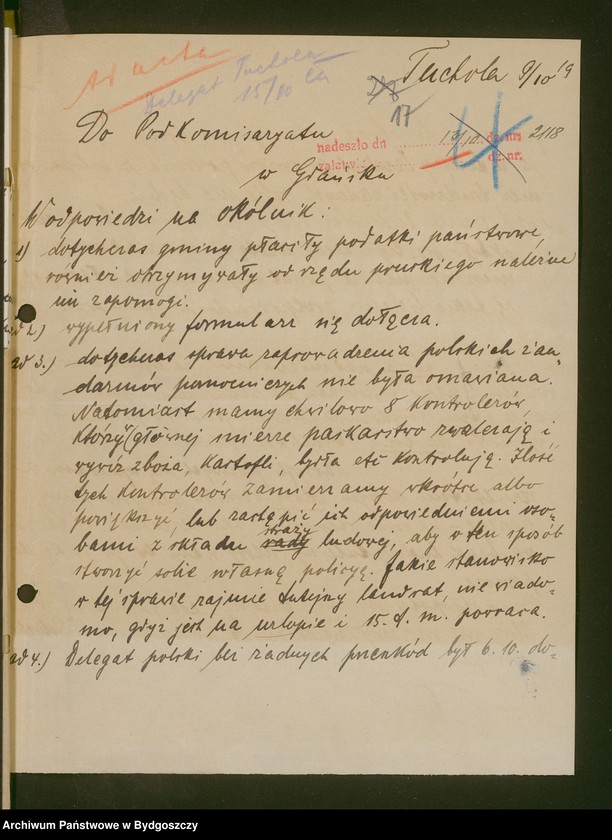 Ad acta
Delegat Tuchola
15/10
Tuchola 9/10 19
17
Do Podkomisaryatu
nadeszło dn 13/10. dz. nr. 2118
dz. nr.
w Gdańsku
W odpowiedzi na okólnik:
1) dotychczas gminy płaciły podatki państwowe,
również otrzymywały od rządu pruskiego należne
im zapomogi.
ad 2.) wypełniony formularz się dołącza.
ad 3.) dotychczas sprawa zaprowadzenia polskich żan„
darmów pomocniczych nie była omawiana.
Natomiast mamy chwilowo 8 kontrolerów,
którzy głównej mierze paskarstwo zwalczają i
wywóz zboża, kartofli, bydła etc kontrolują. Ilość
tych kontrolerów zamierzamy wkrótce albo
powiększyć, lub zastąpić ich odpowiedniemi oso=
straży
bami z składu rady ludowej, aby w ten sposób
stworzyć sobie własną policyę. Jakie stanowisko
w tej sprawie zajmie tutejszy landrat, nie wiado=
mo, gdyż jest na urlopie i 15. t. m. powraca.
ad 4.) Delegat polski bez żadnych przeszkód był 6. 10. do=
Archiwum Państwowe w Bydgoszczy